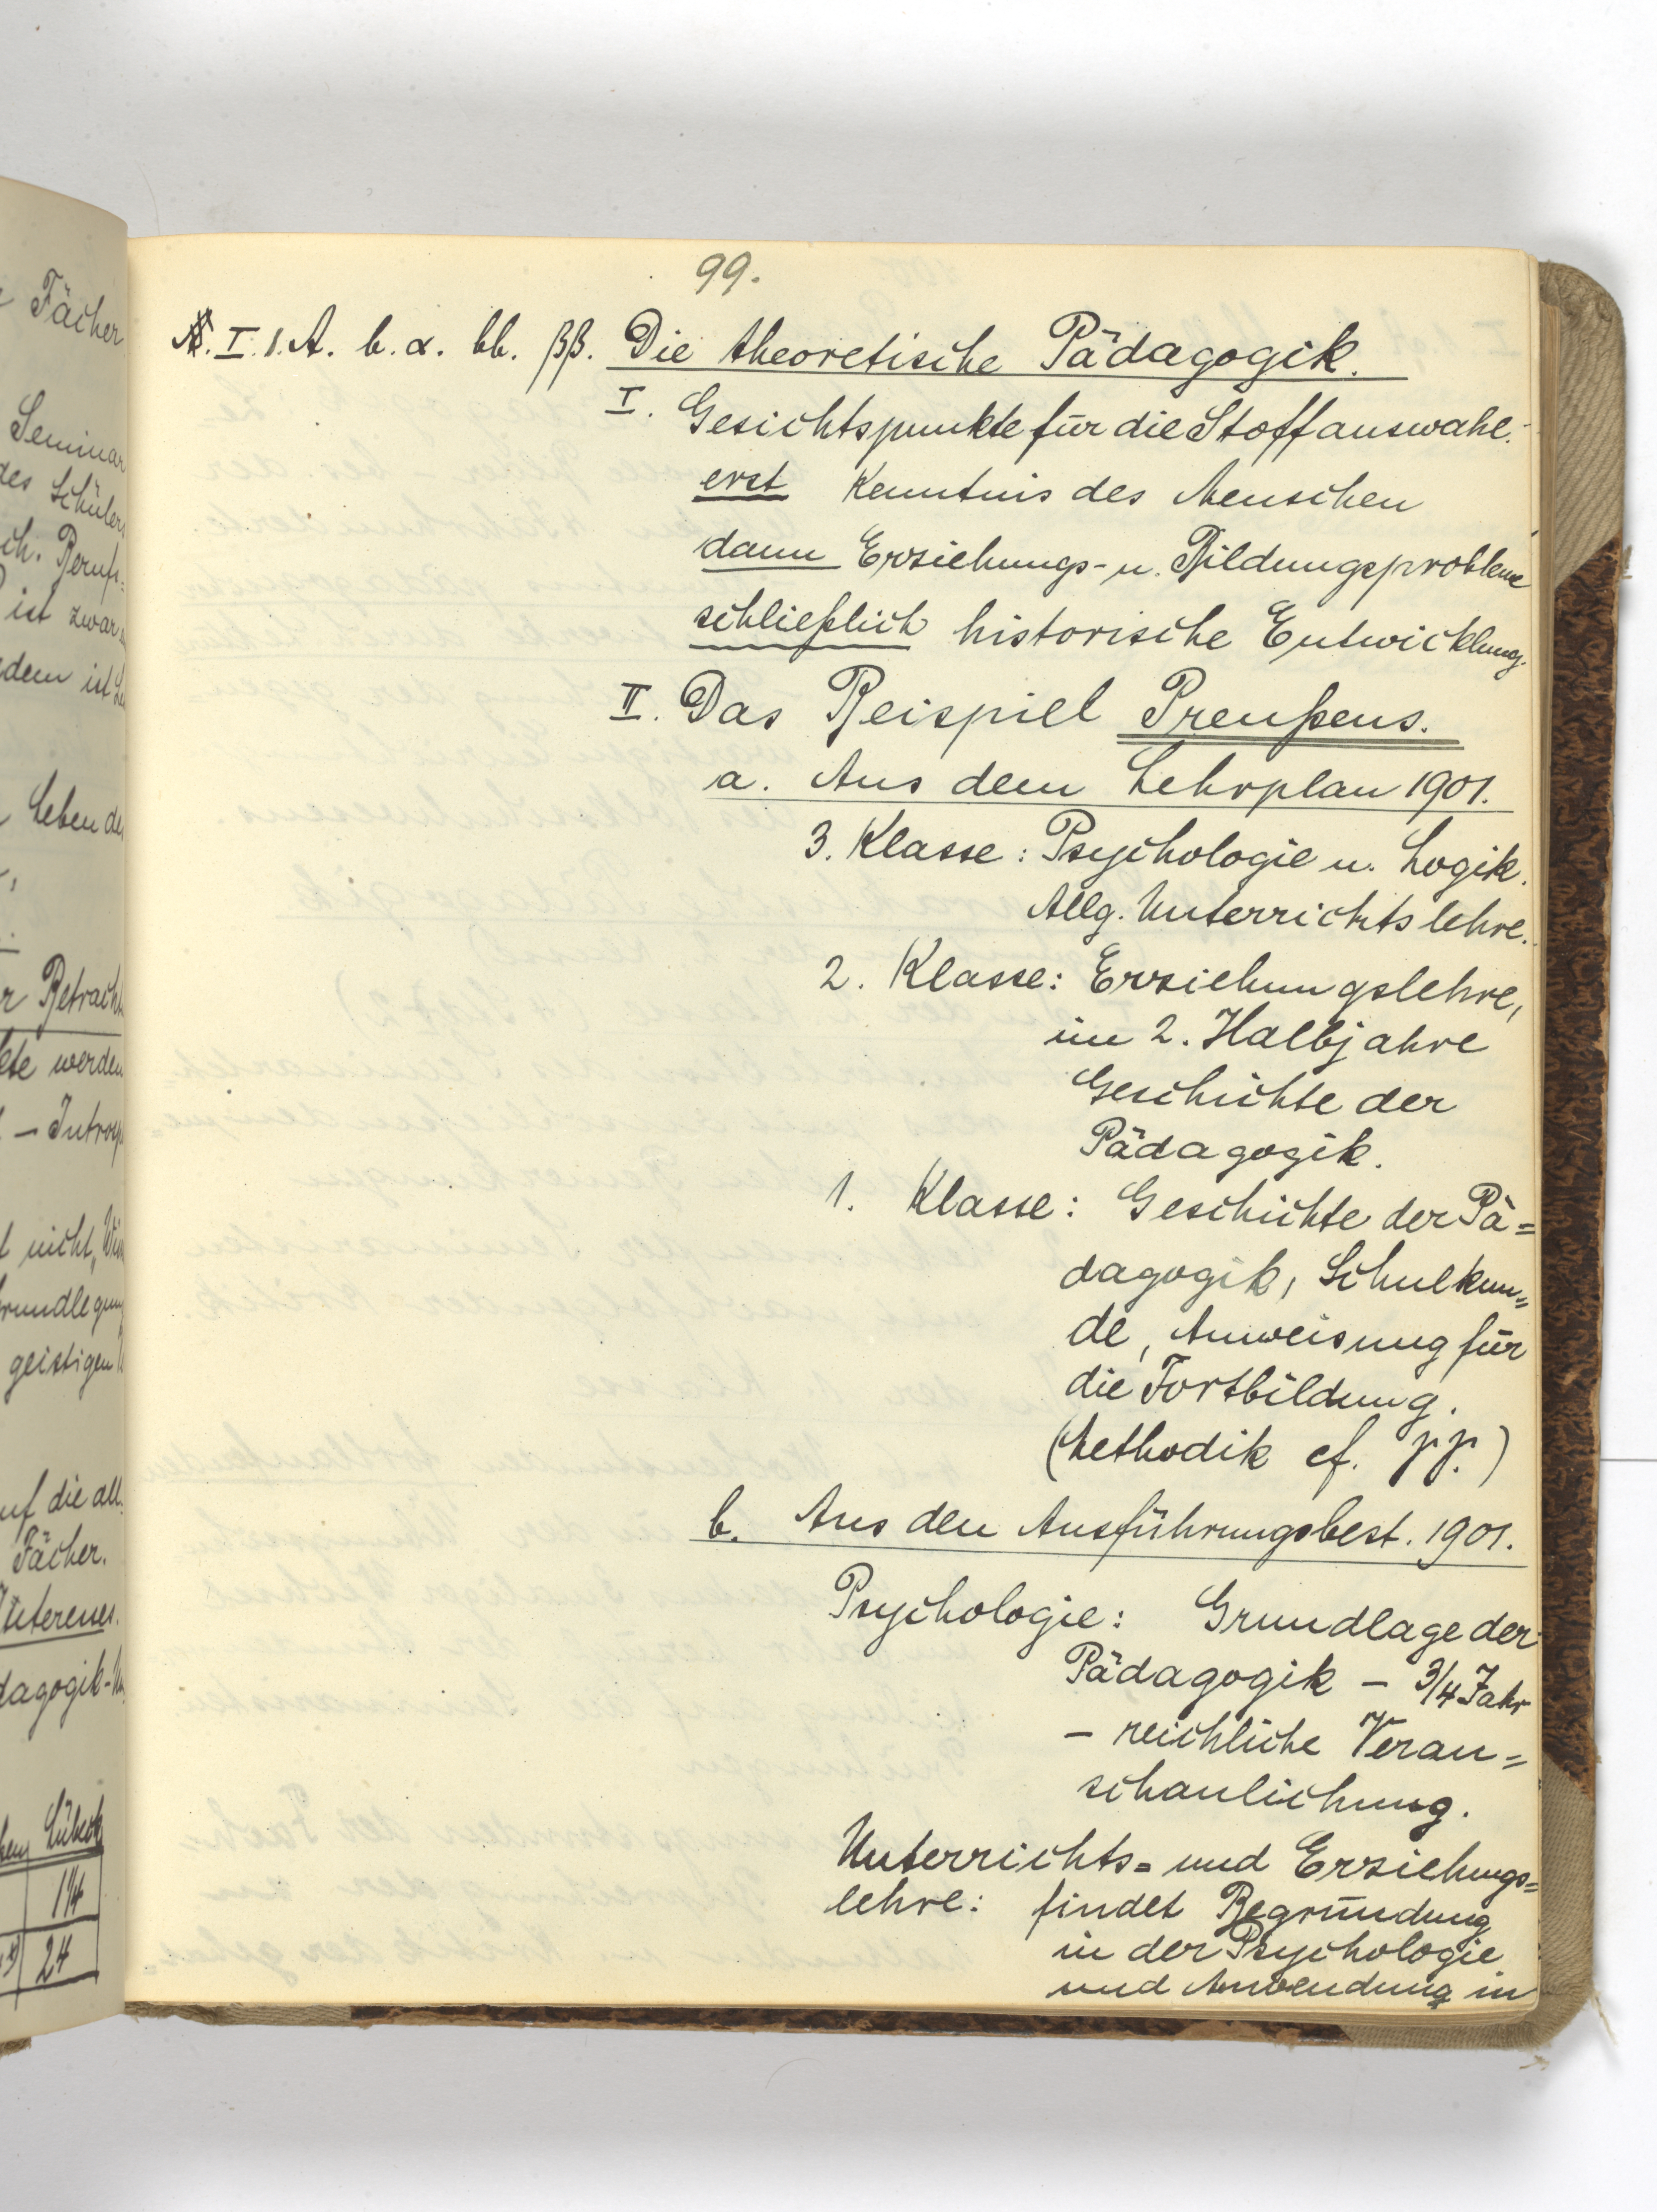 Fächer
Seminar
des Schülers
ch. Berufs-
ist zwar
dem ist
Leben des
r Betracht
ete werden
nicht, 
rundlegung
geistigen
uf die all.
Fächer.
Interesses.
dagogik-
Lübeck
1¼
24
99.
I. 1. A. b. α. bb. ββ. Die theoretische Pädagogik.
I. Gesichtspunkte für die Stoffauswahl.
erst Kenntnis des Menschen
dann Erziehungs- u. Bildungsprobleme
schließlich historische Entwicklung.
II. Das Beispiel Preußens.
a. Aus dem Lehrplan 1901.
3. Klasse: Psychologie u. Logik.
Allg. Unterrichtslehre.
2. Klasse: Erziehungslehre,
im 2. Halbjahre
Geschichte der
Pädagogik.
1. Klasse: Geschichte der Pä=
dagogik, Schulkun=
de, Anweisung für
die Fortbildung.
(Methodik cf. γγ.)
b. Aus den Ausführungsbest. 1901.
Psychologie: Grundlage der
Pädagogik – 3/4 Jahr
– reichliche Veran=
schaulichung.
Unterrichts= und Erziehungs=
lehre: findet Begründung
in der Psychologie
und Anwendung in